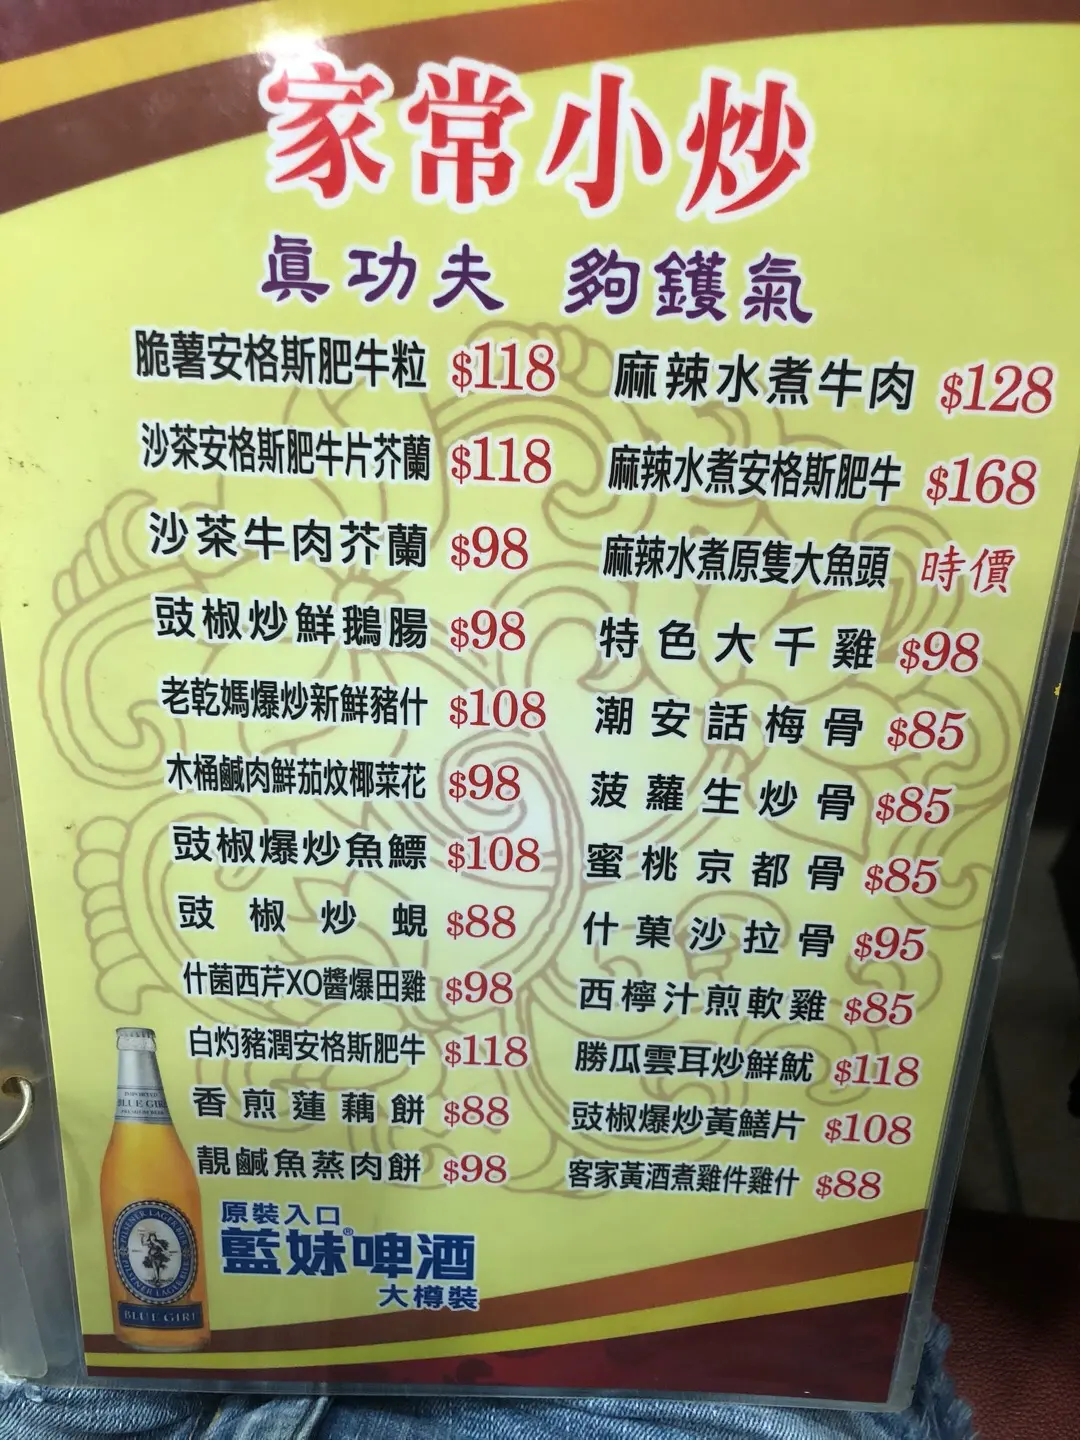 家常小炒
真功夫 夠鑊氣
脆薯安格斯肥牛粒 $118
沙茶安格斯肥牛片芥蘭 $118
沙茶牛肉芥蘭 $98
豉椒炒鮮鵝腸 $98
老乾媽爆炒新鮮豬什 $108
木桶鹹肉鮮茄炆椰菜花 $98
豉椒爆炒魚鰾 $108
豉椒炒蜆 $88
什菌西芹XO醬爆田雞 $98
白灼豬潤安格斯肥牛 $118
香煎蓮藕餅 $88
靚鹹魚蒸肉餅 $98
麻辣水煮牛肉 $128
麻辣水煮安格斯肥牛 $168
麻辣水煮原隻大魚頭 時價
特色大千雞 $98
潮安話梅骨 $85
菠蘿生炒骨 $85
蜜桃京都骨 $85
什菓沙拉骨 $95
西檸汁煎軟雞 $85
勝瓜雲耳炒鮮魷 $118
豉椒爆炒黃鱔片 $108
客家黃酒煮雞件雞什 $88
原裝入口
藍妹®啤酒
大樽裝
BLUE GIRL
PILSENER LAGER BEER
BLUE GIRL